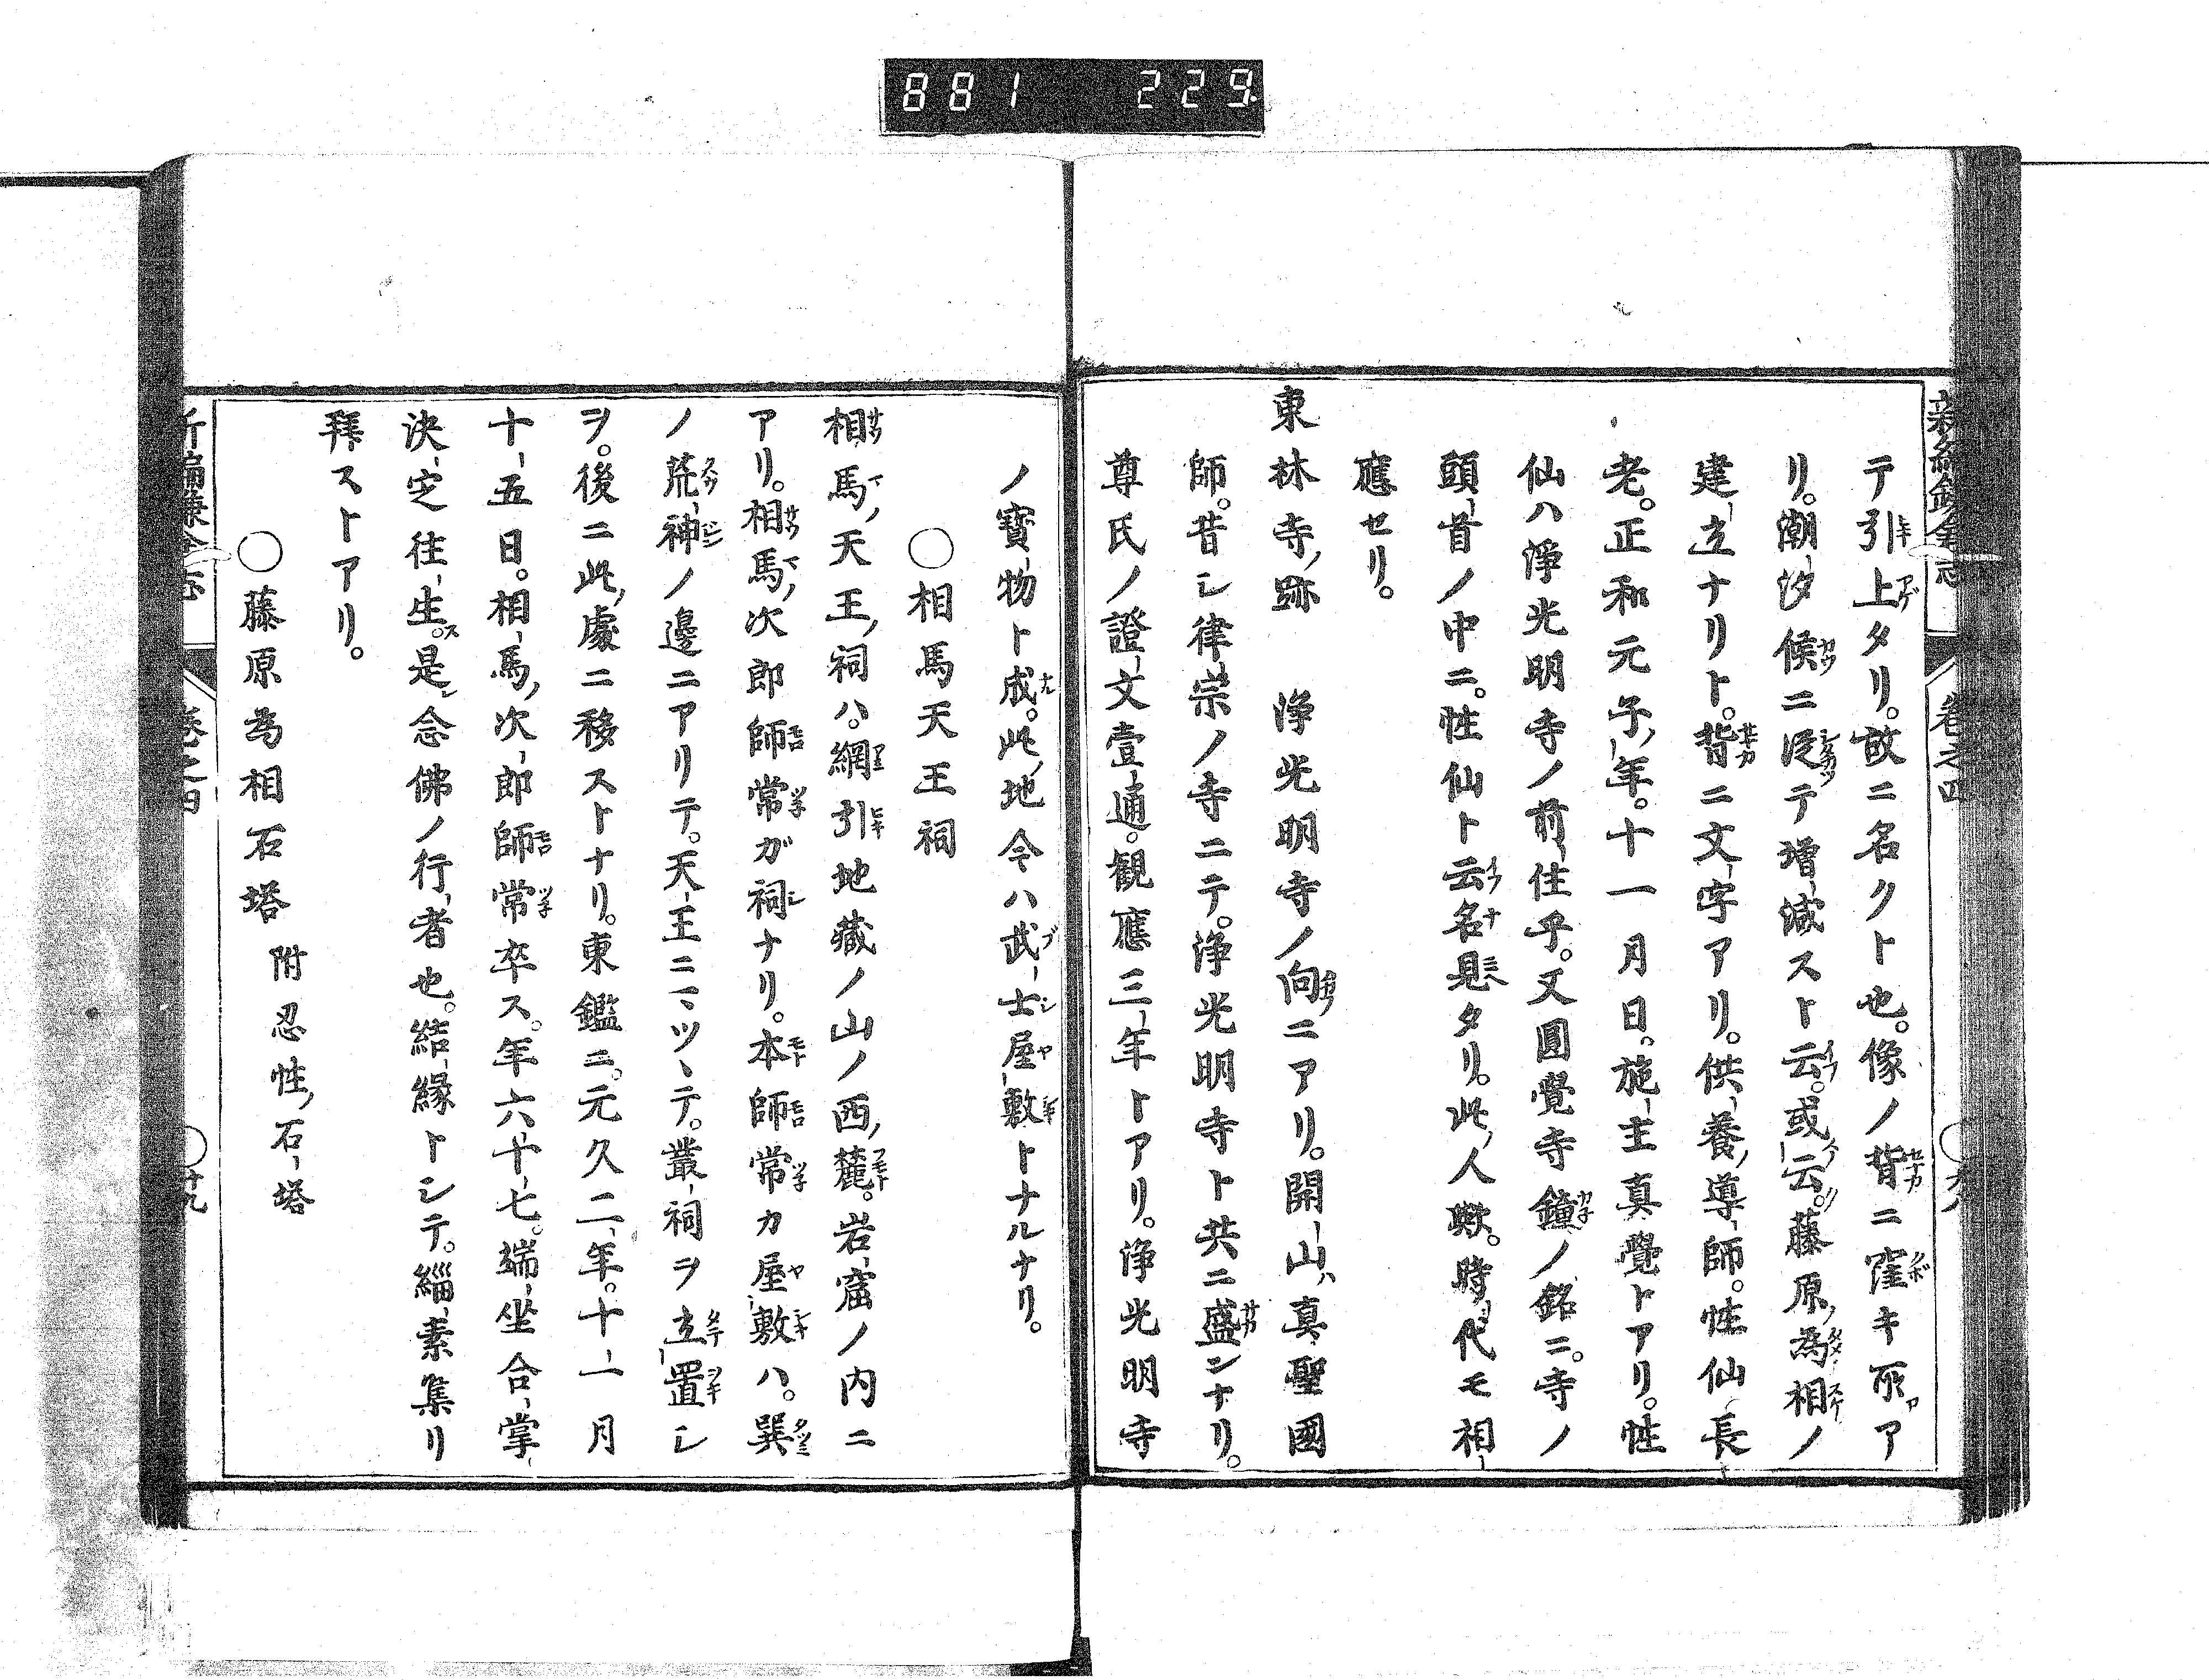 881 229
テ引上タリ。故ニ名クト也。像ノ背ニ窪キ所アア
リ。潮汐候ニ従テ増減スト云。或云。藤原為相ノ
建立ナリト。背ニ文字アリ。供養導師。性仙長
老。正和元子年。十一月日。施主真覺トアリ。性
仙ハ淨光明寺ノ前住乎。又圓覺寺鐘ノ銘ニ。寺ノ
頭首ノ中ニ。性仙ト云名見タリ。此人歟。時代モ相
應セリ。
東林寺跡 淨光明寺ノ向ニアリ。開山ハ真聖國
師。昔シ律宗ノ寺ニテ。淨光明寺ト共ニ盛ンナリ。
尊氏ノ證文壹通。観應三年トアリ。淨光明寺
ノ寶物ト成。此地今ハ武士屋敷トナルナリ。
○相馬天王祠
相馬天王祠ハ。網引地藏ノ山ノ西麓。岩窟ノ内ニ
アリ。相馬次郎師常ガ祠ナリ。本師常カ屋敷ハ。巽
ノ荒神ノ邊ニアリテ。天王ニマツヽテ。叢祠ヲ立置シ
ヲ。後ニ此處ニ移ストナリ。東鑑ニ。元久二年。十一月
十五日。相馬次郎師常卒ス。年六十七。端坐合掌
決定往生ス。是念佛ノ行者也。結縁トシテ。緇素集リ
拜ストアリ。
○藤原為相石塔 附忍性石塔
新編鎌倉志 卷之四 廿九